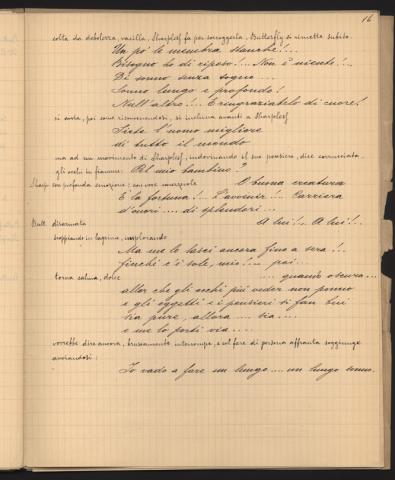 16
colta da debolezza, vacilla, Sharpless fa per sorreggerla, Butterfly si rimette subito.
Un pò le membra stanche!...
Bisogno ho di riposo!... Non è niente!...
Di sonno senza sogno...
Sonno lungo e profondo!
Null'altro!... E ringraziatelo di cuore!
si avvia, poi come riconoscendosi, si inchina avanti a Sharpless
Siete l'uomo migliore
di tutto il mondo
ma ad un movimento di Sharpless, indovinando il suo pensiero, dice corrucciata,
gli occhi in fiamme: Pel mio bambino?
Sharp. con profonda emozione: con voce O buona creatura
È la fortuna!... L'avvenir!... Carriera
d'onori.... di splendori...
Butt. disarmata A lui!... A lui!..
scoppiando in lagrime, implorando
Ma me lo lasci ancora fino a sera!..
finchè c'è sole, mio!... poi...
torna calma, dolce .... quando oscura...
allor che gli occhi più veder non ponno
e gli oggetti e i pensieri si fan bui
sia pure, allora.... sia....
e me lo porti via....
vorrebbe dire ancora, bruscamente interrompe, e col fare di persona affranta soggiunge
avviandosi:
Io vado a fare un lungo.... un lungo sonno.